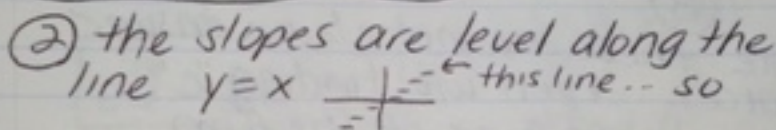 ② the slopes are level along the
line y=x ← this line... so